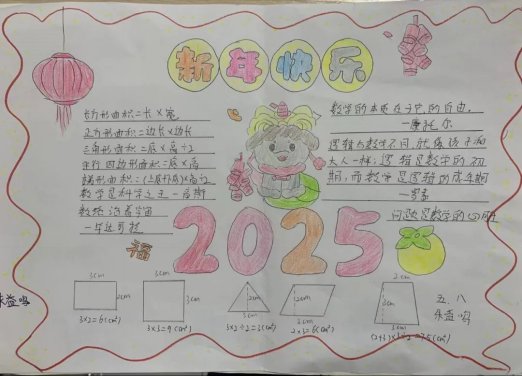 新年快乐
长方形面积=长×宽
正方形面积=边长×边长
三角形面积=底×高÷2
平行四边形面积=底×高
梯形面积=(上底+下底)×高÷2
数学是科学之王—高斯
数学的本质在于它的自由.
—康托尔
逻辑与数学不同,就像孩子和
大人一样,逻辑是数学的初
期,而数学是逻辑的成年期
—罗素
问题是数学的心脏
福
2025
3cm
2cm
3×2=6(cm²)
3cm
3cm
3×3=9(cm²)
2cm
3cm
3×2÷2=3(cm²)
3cm
2cm
2×3=6(cm²)
2cm
3cm
3cm
五.八